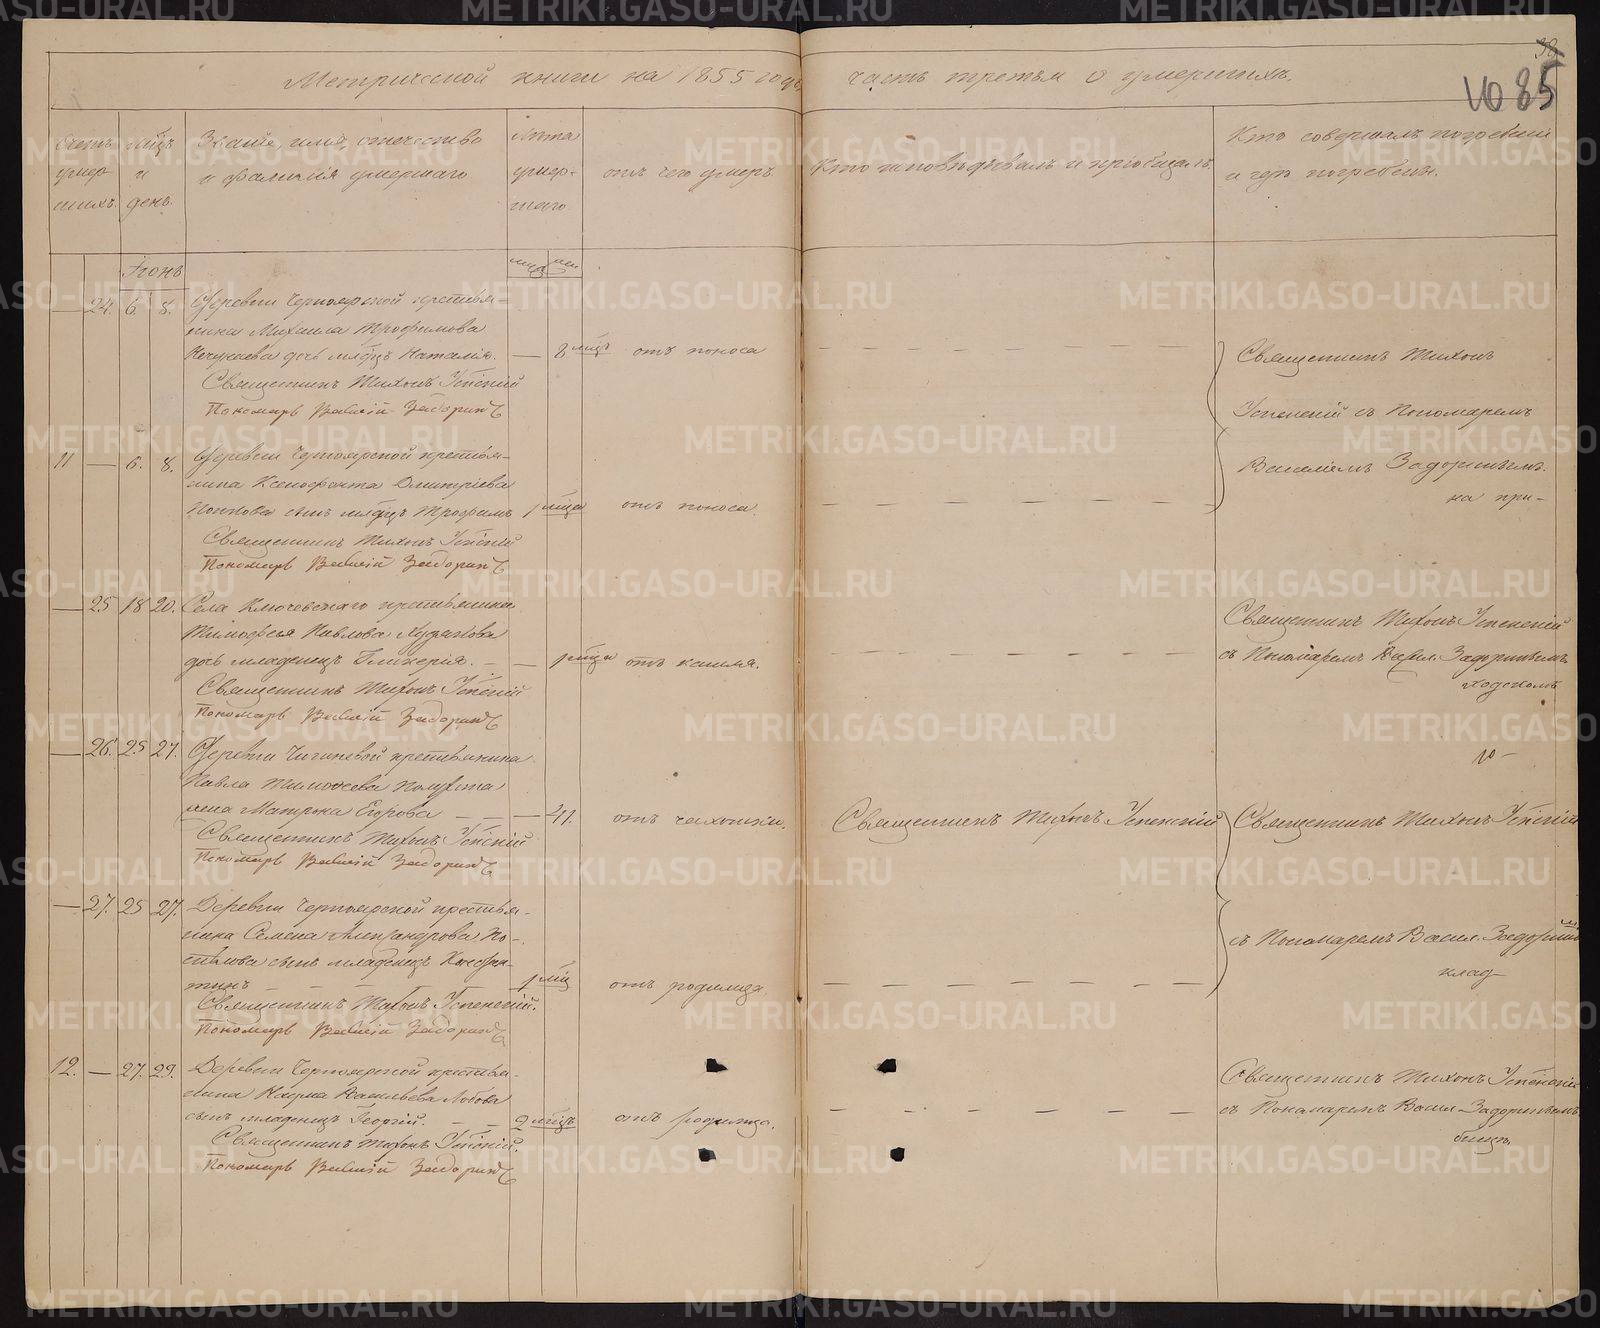 Метрической книги на 1855 годъ часть третья о умершихъ.
85
Счетъ умершихъ.
Мѣсяцъ и день.
Званіе, имя, отчество
и фамилія умершаго
Лѣта
умер-
шаго
отъ чего умеръ.
Кто исповѣдывалъ и пріобщалъ.
Кто совершалъ погребеніе
и гдѣ погребены.
Іюнь
— 24. 6. 8. Деревни Черноярской крестья-
нина Михаила Трофимова
дочь млдцъ Наталія. — 8 мцъ отъ поноса — — — — — — —
Священникъ Тихонъ Успенскій
Пономарь Василій Задоринъ
Священникъ Тихонъ
Успенскій съ Пономаремъ
Василіемъ Задоринымъ.
на при-
11 — 6. 8. Деревни Черноярской крестья-
нина Ксенофонта Дмитріева
Попкова сынъ млдцъ Трофимъ 1 мца отъ поноса. — — — — — — —
Священникъ Тихонъ Успенскій
Пономарь Василій Задоринъ
— 25 18 20. Села Ключевскаго крестьянина
Тимофея Павлова
дочь младенецъ Гликерія. — — 1 мца отъ кашля. — — — — — — —
Священникъ Тихонъ Успенскій
Пономарь Василій Задоринъ
Священникъ Тихонъ Успенскій
съ Пономаремъ Васил. Задоринымъ
ходскомъ
— 26. 25 27. Деревни крестьянина
Павла Тимофеева
жена Матрона Егорова — — — 41. отъ чахотки. Священникъ Тихонъ Успенскій
Священникъ Тихонъ Успенскій
Пономарь Василій Задоринъ
Священникъ Тихонъ Успенскій
съ Пономаремъ Васил. Задоринымъ
клад-
— 27. 25 27. Деревни Черноярской крестья-
нина Семена Александрова По-
сынъ младенецъ Констан-
тинъ — — — 1 мцъ отъ родимца — — — — — — —
Священникъ Тихонъ Успенскій.
Пономарь Василій Задоринъ
12. — 27. 29. Деревни Черноярской крестья-
нина Наума Васильева Лобова
сынъ младенецъ Георгій. — — 2 мцъ отъ родимца. — — — — — — —
Священникъ Тихонъ Успенскій.
Пономарь Василій Задоринъ
Священникъ Тихонъ Успенскій
съ Пономаремъ Васил. Задоринымъ
бищѣ.
METRIKI.GASO-URAL.RU